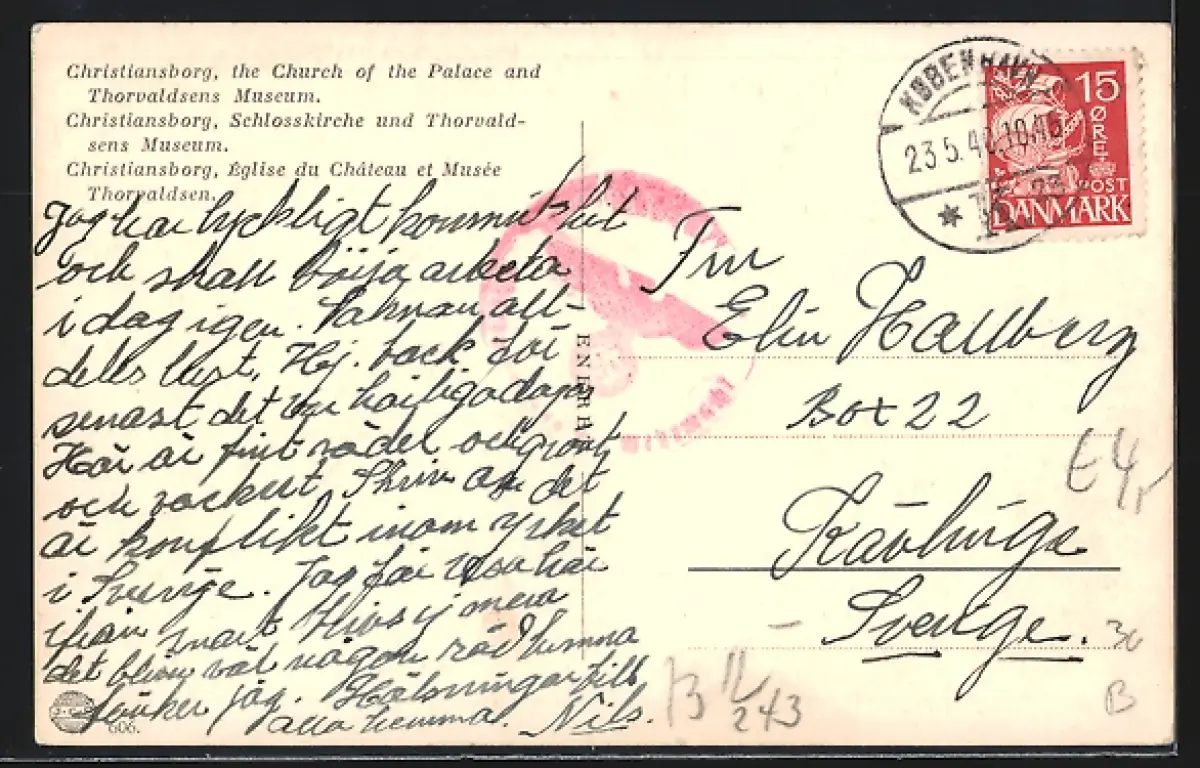 Christiansborg, the Church of the Palace and
Thorvaldsens Museum.
Christiansborg, Schlosskirche und Thorvald-
sens Museum.
Christiansborg, Église du Château et Musée
Thorvaldsen.
Jag har lyckligt kommit hit
och skall börja arbeta
i dag igen. Saknar all-
deles lust. Hej. tack för
senast det var
Här är fint väder och grönt
och vackert. Skriv om det
är konflikt inom yrket
i Sverige. Jag får resa här
ifrån snart
det bliver väl någon råd hemma
tänker jag. Hälsningar till
alla hemma. Nils.
606.
ENERET
KØBENHAVN
23.5.40.10.45
15
ØRE
POST
DANMARK
Fru
Elin Hallberg
Box 22
Kävlinge
Sverige.
30
B
243